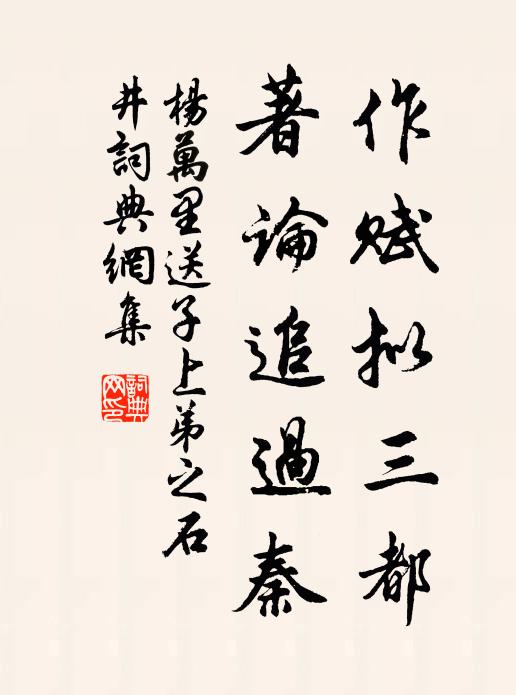 作賦拟三都
著論追過秦
楊萬里送子上弟之石
井詞典網集
詞典網印